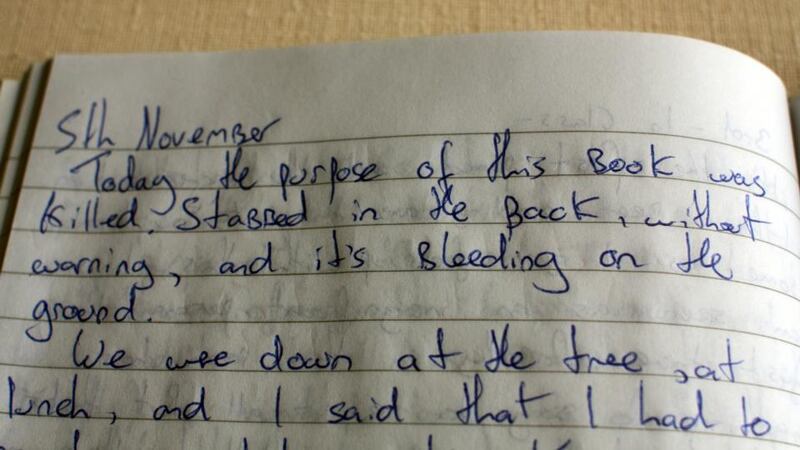 5th November
Today the purpose of this Book was
killed. Stabbed in the Back, without
warning, and it's Bleeding on the
ground.
We wee down at the tree, at
lunch, and I said that I had to